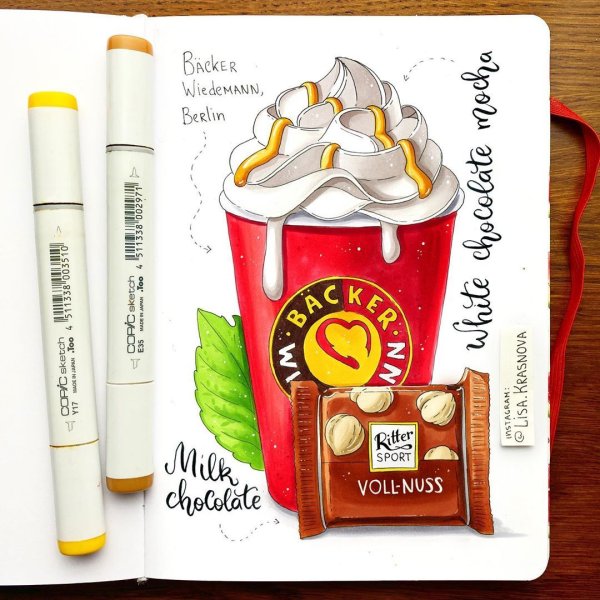 BÄCKER
WIEDEMANN,
BERLIN
White chocolate mocha
BÄCKER
WI
NN
Ritter
SPORT
VOLL-NUSS
Milk
chocolate
INSTAGRAM:
@LISA.KRASNOVA
COPIC sketch
MADE IN JAPAN .Too
4 511338 003510
Y17
COPIC sketch
MADE IN JAPAN .Too
4 511338 002971
E35